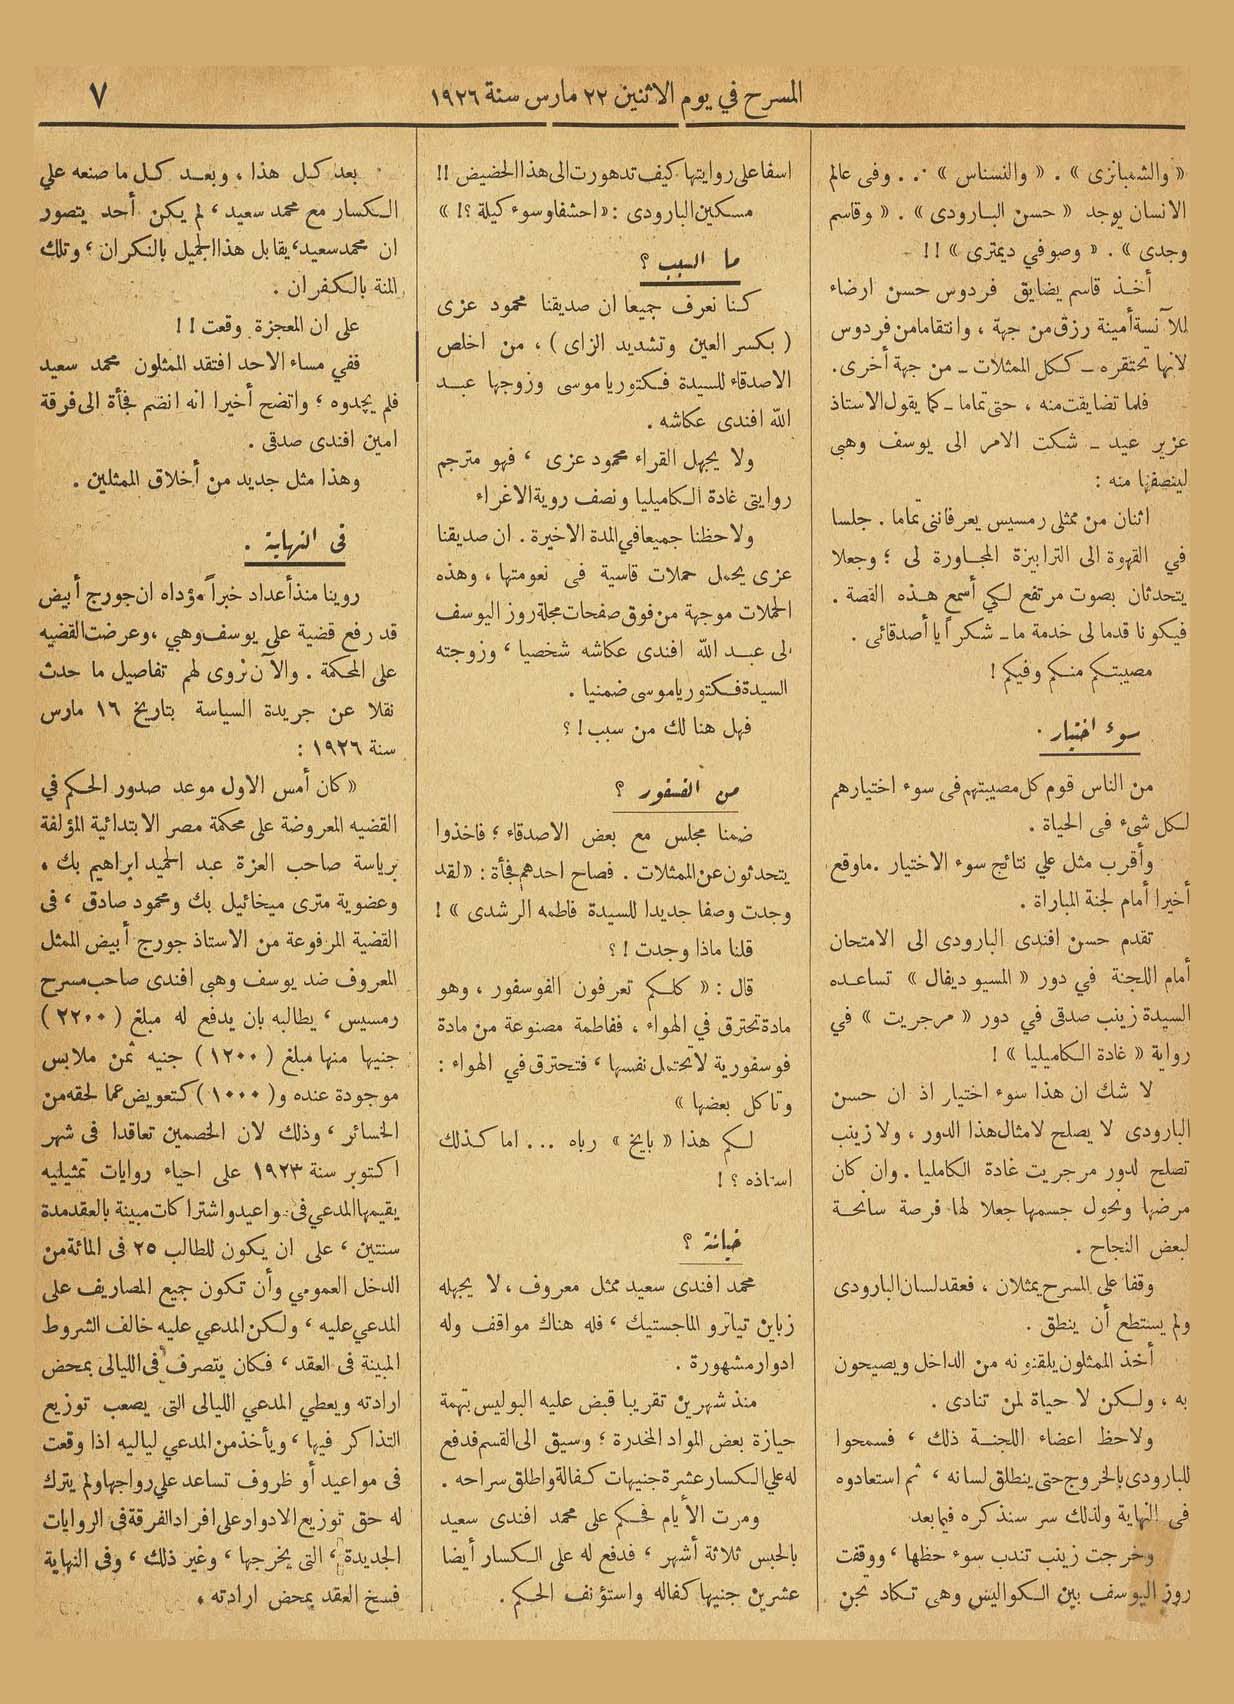 المسرح في يوم الاثنين ٢٢ مارس سنة ١٩٢٦
٧
« والشمبانزى » . « والنسناس » . . وفى عالم
الانسان يوجد « حسن البارودى » . « وقاسم
وجدى » . « وصوفي ديمترى » !!
أخذ قاسم يضايق فردوس حسن ارضاء
للآنسة أمينة رزق من جهة ، وانتقاما من فردوس
لانها تحتقره ــ ككل الممثلات ــ من جهة أخرى.
فلما تضايقت منه ، حتى تماما ــ كما يقول الاستاذ
عزيز عيد ــ شكت الامر الى يوسف وهبى
لينصفها منه :
اثنان من ممثلى رمسيس يعرفاننى تماما . جلسا
في القهوة الى الترابيزة المجاورة لى ؛ وجعلا
يتحدثان بصوت مرتفع لكي أسمع هذه القصة .
فيكونا قدما لى خدمة ما ــ شكراً يا أصدقائى .
مصيبتكم منكم وفيكم !
سوء اختيار .
من الناس قوم كل مصيبتهم فى سوء اختيارهم
لكل شىء فى الحياة .
وأقرب مثل علي نتائج سوء الاختيار . ما وقع
أخيرا أمام لجنة المباراة .
تقدم حسن افندى البارودى الى الامتحان
أمام اللجنة في دور « المسيو ديفال » تساعده
السيدة زينب صدقى في دور « مرجريت » في
رواية « غادة الكاميليا » !
لا شك ان هذا سوء اختيار اذ ان حسن
البارودى لا يصلح لامثال هذا الدور ، ولا زينب
تصلح لدور مرجريت غادة الكامليا . وان كان
مرضها ونحول جسمها جعلا لها فرصة سانحة
لبعض النجاح .
وقفا على المسرح يمثلان ، فعقد لسان البارودى
ولم يستطع أن ينطق .
أخذ الممثلون يلقنونه من الداخل ويصيحون
به ، ولكن لا حياة لمن تنادى .
ولاحظ اعضاء اللجنة ذلك ، فسمحوا
للبارودى بالخروج حتى ينطلق لسانه ، ثم استعادوه
فى النهاية ولذلك سر سنذكره فيما بعد
وخرجت زينب تندب سوء حظها ، ووقفت
روز اليوسف بين الكواليس وهى تكاد تجن
اسفا على روايتها كيف تدهورت الى هذا الحضيض !!
مسكين البارودى : « احشفا وسوء كيلة ؟! »
ما السبب ؟
كنا نعرف جميعا ان صديقنا محمود عزى
( بكسر العين وتشديد الزاى ) ، من اخلص
الاصدقاء للسيدة فكتوريا موسى وزوجها عبد
الله افندى عكاشه .
ولا يجهل القراء محمود عزى ، فهو مترجم
روايتى غادة الكاميليا ونصف روية الاغراء
ولاحظنا جميعا في المدة الاخيرة . ان صديقنا
عزى يحمل حملات قاسية فى نعومتها ، وهذه
الحملات موجهة من فوق صفحات مجلة روز اليوسف
الى عبد الله افندى عكاشه شخصيا ، وزوجته
السيدة فكتوريا موسى ضمنيا .
فهل هنا لك من سبب ! ؟
من الفسفور ؟
ضمنا مجلس مع بعض الاصدقاء ؛ فاخذوا
يتحدثون عن الممثلات . فصاح احدهم فجأة : « لقد
وجدت وصفا جديدا للسيدة فاطمه الرشدى » !
قلنا ماذا وجدت ! ؟
قال : « كلكم تعرفون الفوسفور ، وهو
مادة تحترق في الهواء ، ففاطمة مصنوعة من مادة
فوسفورية لا تحتمل نفسها ، فتحترق في الهواء :
وتاكل بعضها »
لكم هذا « بايخ » رباه ... اما كذلك
استاذه ؟ !
خيانة ؟
محمد افندى سعيد ممثل معروف ، لا يجهله
زباين تياترو الماجستيك ، فله هناك مواقف وله
ادوار مشهورة .
منذ شهرين تقريبا قبض عليه البوليس بتهمة
حيازة بعض المواد المخدرة ؛ وسيق الى القسم فدفع
له علي الكسار عشرة جنيهات كفالة واطلق سراحه .
ومرت الأيام فحكم على محمد افندى سعيد
بالحبس ثلاثة أشهر ، فدفع له على الكسار أيضا
عشرين جنيها كفاله واستؤنف الحكم .
بعد كل هذا ، وبعد كل ما صنعه علي
الكسار مع محمد سعيد ، لم يكن أحد يتصور
ان محمد سعيد ، يقابل هذا الجميل بالنكران ؛ وتلك
المنة بالكفران .
على ان المعجزة وقعت !!
ففي مساء الاحد افتقد الممثلون محمد سعيد
فلم يجدوه ؛ واتضح أخيرا انه انضم فجأة الى فرقة
امين افندى صدقى .
وهذا مثل جديد من أخلاق الممثلين .
فى النهاية .
روينا منذ أعداد خبراً مؤداه ان جورج أبيض
قد رفع قضية على يوسف وهبي ، وعرضت القضيه
على المحكمة . والآن نروى لهم تفاصيل ما حدث
نقلا عن جريدة السياسة بتاريخ ١٦ مارس
سنة ١٩٢٦ :
« كان أمس الاول موعد صدور الحكم في
القضيه المعروضة على محكمة مصر الابتدائية المؤلفة
برياسة صاحب العزة عبد الحميد ابراهيم بك .
وعضوية مترى ميخائيل بك ومحمود صادق ، فى
القضية المرفوعة من الاستاذ جورج أبيض الممثل
المعروف ضد يوسف وهبى افندى صاحب مسرح
رمسيس ، يطالبه بان يدفع له مبلغ ( ٢٢٠٠ )
جنيها منها مبلغ ( ١٢٠٠ ) جنيه ثمن ملابس
موجودة عنده و ( ١٠٠٠ ) كتعويض عما لحقه من
الخسائر ، وذلك لان الخصمين تعاقدا فى شهر
اكتوبر سنة ١٩٢٣ على احياء روايات تمثيليه
يقيمها المدعي فى مواعيد واشتراكات مبينة بالعقد مدة
سنتين ، على ان يكون للطالب ٢٥ فى المائة من
الدخل العمومي وأن تكون جميع المصاريف على
المدعي عليه ، ولكن المدعي عليه خالف الشروط
المبينة فى العقد ، فكان يتصرف فى الليالى بمحض
ارادته ويعطي المدعي الليالى التى يصعب توزيع
التذاكر فيها ، ويأخذ من المدعي لياليه اذا وقعت
فى مواعيد أو ظروف تساعد علي رواجها ولم يترك
له حق توزيع الادوار على افراد الفرقة فى الروايات
الجديدة ، التى يخرجها ، وغير ذلك ، وفى النهاية
فسخ العقد بمحض ارادته .